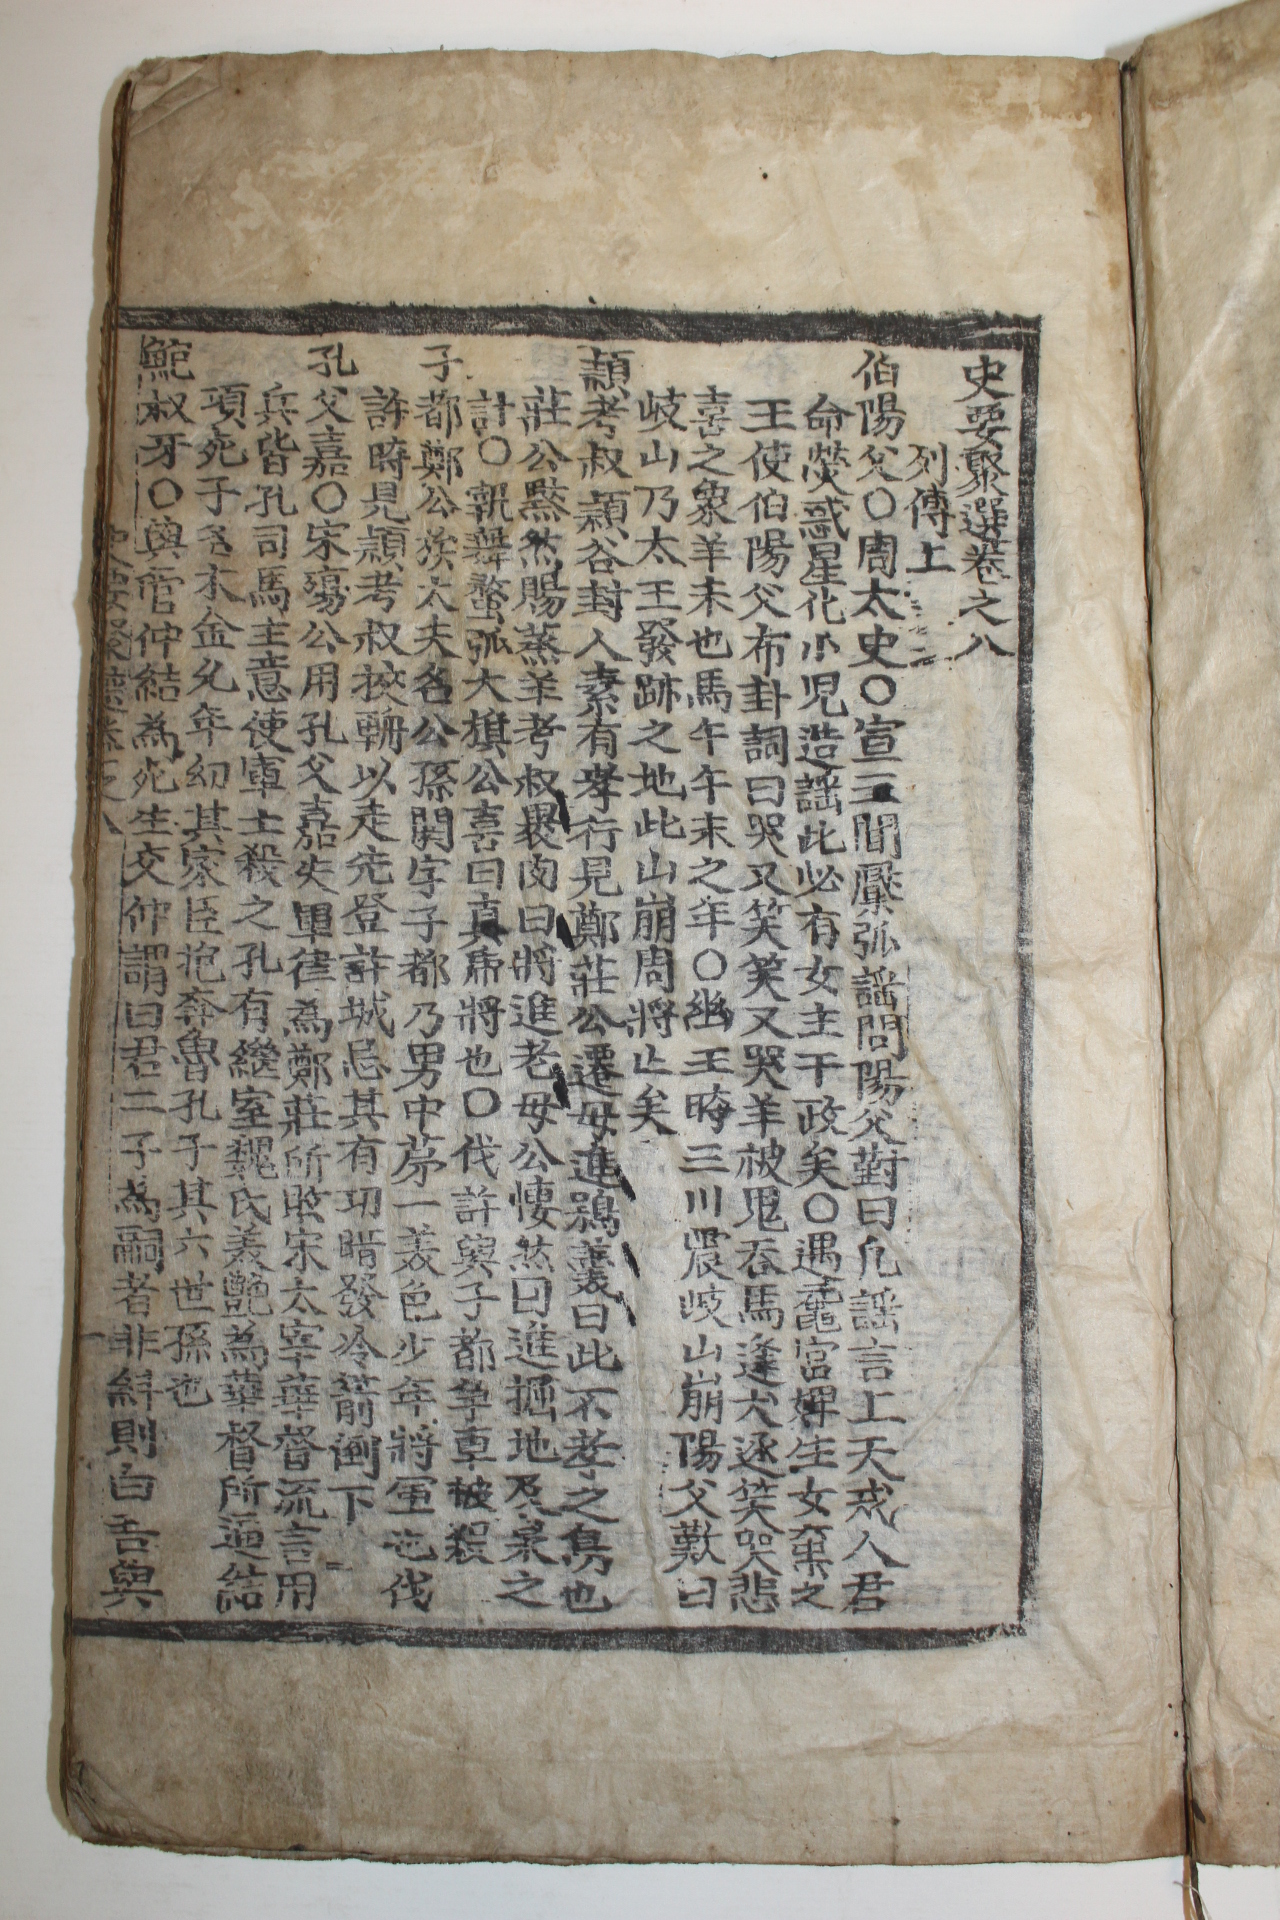 史要聚選卷之八
列傳上
伯陽父○周太史○宣王聞檿弧謠問陽父對曰凡謠言上天戒人君
命熒惑星化小児造謠此必有女主干政矣○遇竈宮婢生女棄之
王使伯陽父布卦詞曰哭又笑笑又哭羊被鬼吞馬逢犬逐笑哭悲
喜之象羊未也馬午午未之年○幽王時三川震岐山崩陽父歎曰
岐山乃太王發跡之地此山崩周將亡矣
頴考叔頴谷封人素有孝行見鄭莊公遷母進鴞羹曰此不孝之鳥也
莊公默然賜蒸羊考叔裹肉曰將進老母公悽然曰進掘地及泉之
計○執舞蝥弧大旗公喜曰真席將也○代許與子都爭車被殺
子都鄭公族大夫名公孫閼字子都乃男中苐一美色少年將軍也伐
許時見頴考叔挾輈以走先登許城忌其有功暗發冷箭倒下
孔父嘉○宋殤公用孔父嘉失軍律為鄭莊所敗宋太宰華督流言用
兵皆孔司馬主意使軍士殺之孔有繼室魏氏美艶為華督所逼結
項死子名木金父年幼其家臣抱奔魯孔子其六世孫也
鮑叔牙○與管仲結為死生交仲謂曰君二子為嗣者非糾則白吾與
史要聚選卷之八